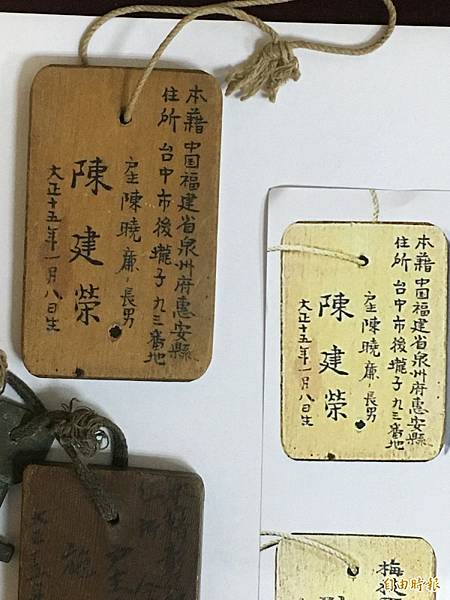 本籍 中国福建省泉州府惠安縣
住所 台中市後壠子九三番地
戶主陳曉廉,長男
陳建榮
大正十五年一月八日生
本籍 中国福建省泉州府惠安縣
住所 台中市後壠子九三番地
戶主陳曉廉,長男
陳建榮
大正十五年一月八日生
梅
自由時報